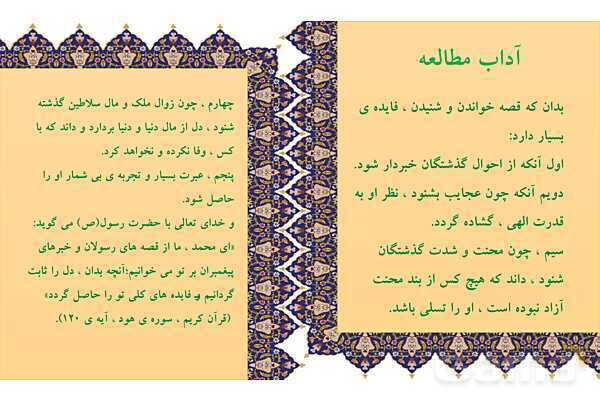 آداب مطالعه
بدان که قصه خواندن و شنیدن ، فایده ی
بسیار دارد:
اول آنکه از احوال گذشتگان خبردار شود.
دویم آنکه چون عجایب بشنود ، نظر او به
قدرت الهی ، گشاده گردد.
سیم ، چون محنت و شدت گذشتگان
شنود ، داند که هیچ کس از بند محنت
آزاد نبوده است ، او را تسلی باشد.
چهارم ، چون زوال ملک و مال سلاطین گذشته
شنود ، دل از مال دنیا و دنیا بردارد و داند که با
کس ، وفا نکرده و نخواهد کرد.
پنجم ، عبرت بسیار و تجربه ی بی شمار او را
حاصل شود.
و خدای تعالی با حضرت رسول(ص) می گوید:
«ای محمد ، ما از قصه های رسولان و خبرهای
پیغمبران بر تو می خوانیم؛آنچه بدان ، دل را ثابت
گردانیم و فایده های کلی تو را حاصل گردد»
(قرآن کریم ، سوره ی هود ، آیه ی ۱۲۰).